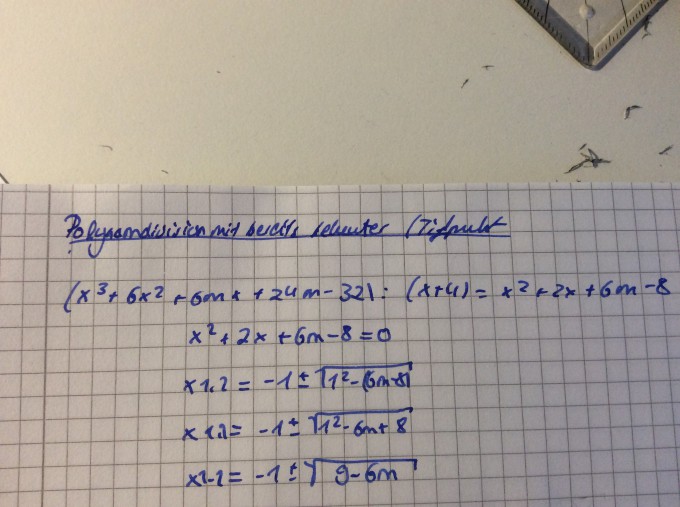 Polynomdivision mit bereits bekannter (Tiefpunkt
(x³ + 6x² + 6mx + 24m - 32) : (x+4) = x² + 2x + 6m - 8
x² + 2x + 6m - 8 = 0
x1,2 = -1 ± √1² - (6m-8)
x1,2 = -1 ± √1² - 6m + 8
x1,2 = -1 ± √9 - 6m